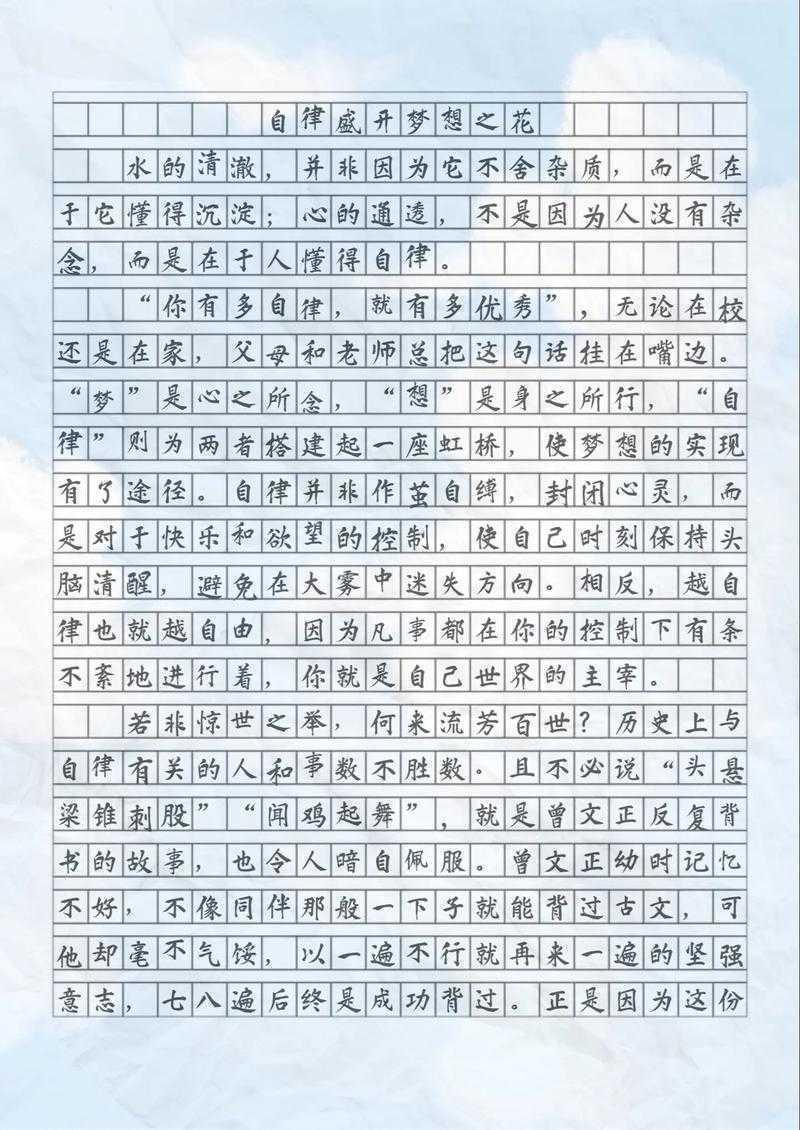 自律盛开梦想之花
水的清澈，并非因为它不舍杂质，而是在
于它懂得沉淀；心的通透，不是因为人没有杂
念，而是在于人懂得自律。
“你有多自律，就有多优秀”，无论在校
还是在家，父母和老师总把这句话挂在嘴边。
“梦”是心之所念，“想”是身之所行，“自
律”则为两者搭建起一座虹桥，使梦想的实现
有了途径。自律并非作茧自缚，封闭心灵，而
是对于快乐和欲望的控制，使自己时刻保持头
脑清醒，避免在大雾中迷失方向。相反，越自
律也就越自由，因为凡事都在你的控制下有条
不紊地进行着，你就是自己世界的主宰。
若非惊世之举，何来流芳百世？历史上与
自律有关的人和事数不胜数。且不必说“头悬
梁锥刺股”“闻鸡起舞”，就是曾文正反复背
书的故事，也令人暗自佩服。曾文正幼时记忆
不好，不像同伴那般一下子就能背过古文，可
他却毫不气馁，以一遍不行就再来一遍的坚强
意志，七八遍后终是成功背过。正是因为这份